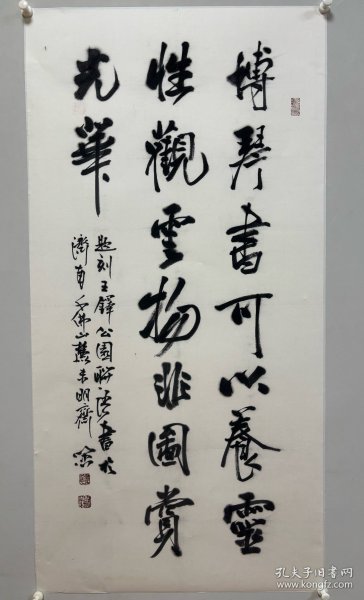 博琴書可以養靈
性觀雲物非圖賞
光華
題刻王鐸公園聯語書於
濟南千佛山麓未明齋
孔夫子旧书网
www.kongfz.com